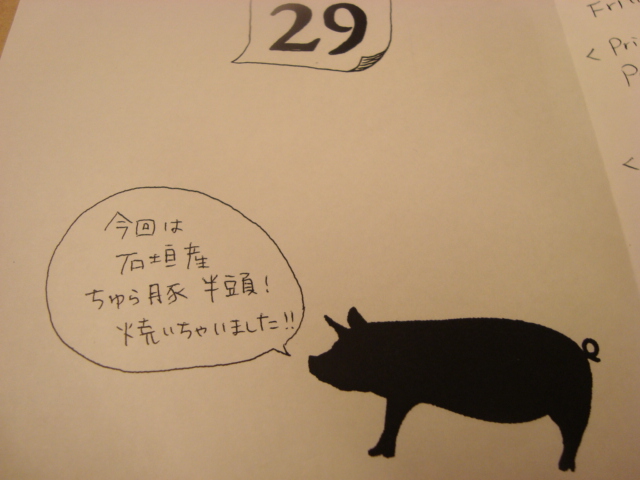 29
今回は
石垣産
ちゅら豚 半頭!
焼いちゃいました!!
< Pri
P
<